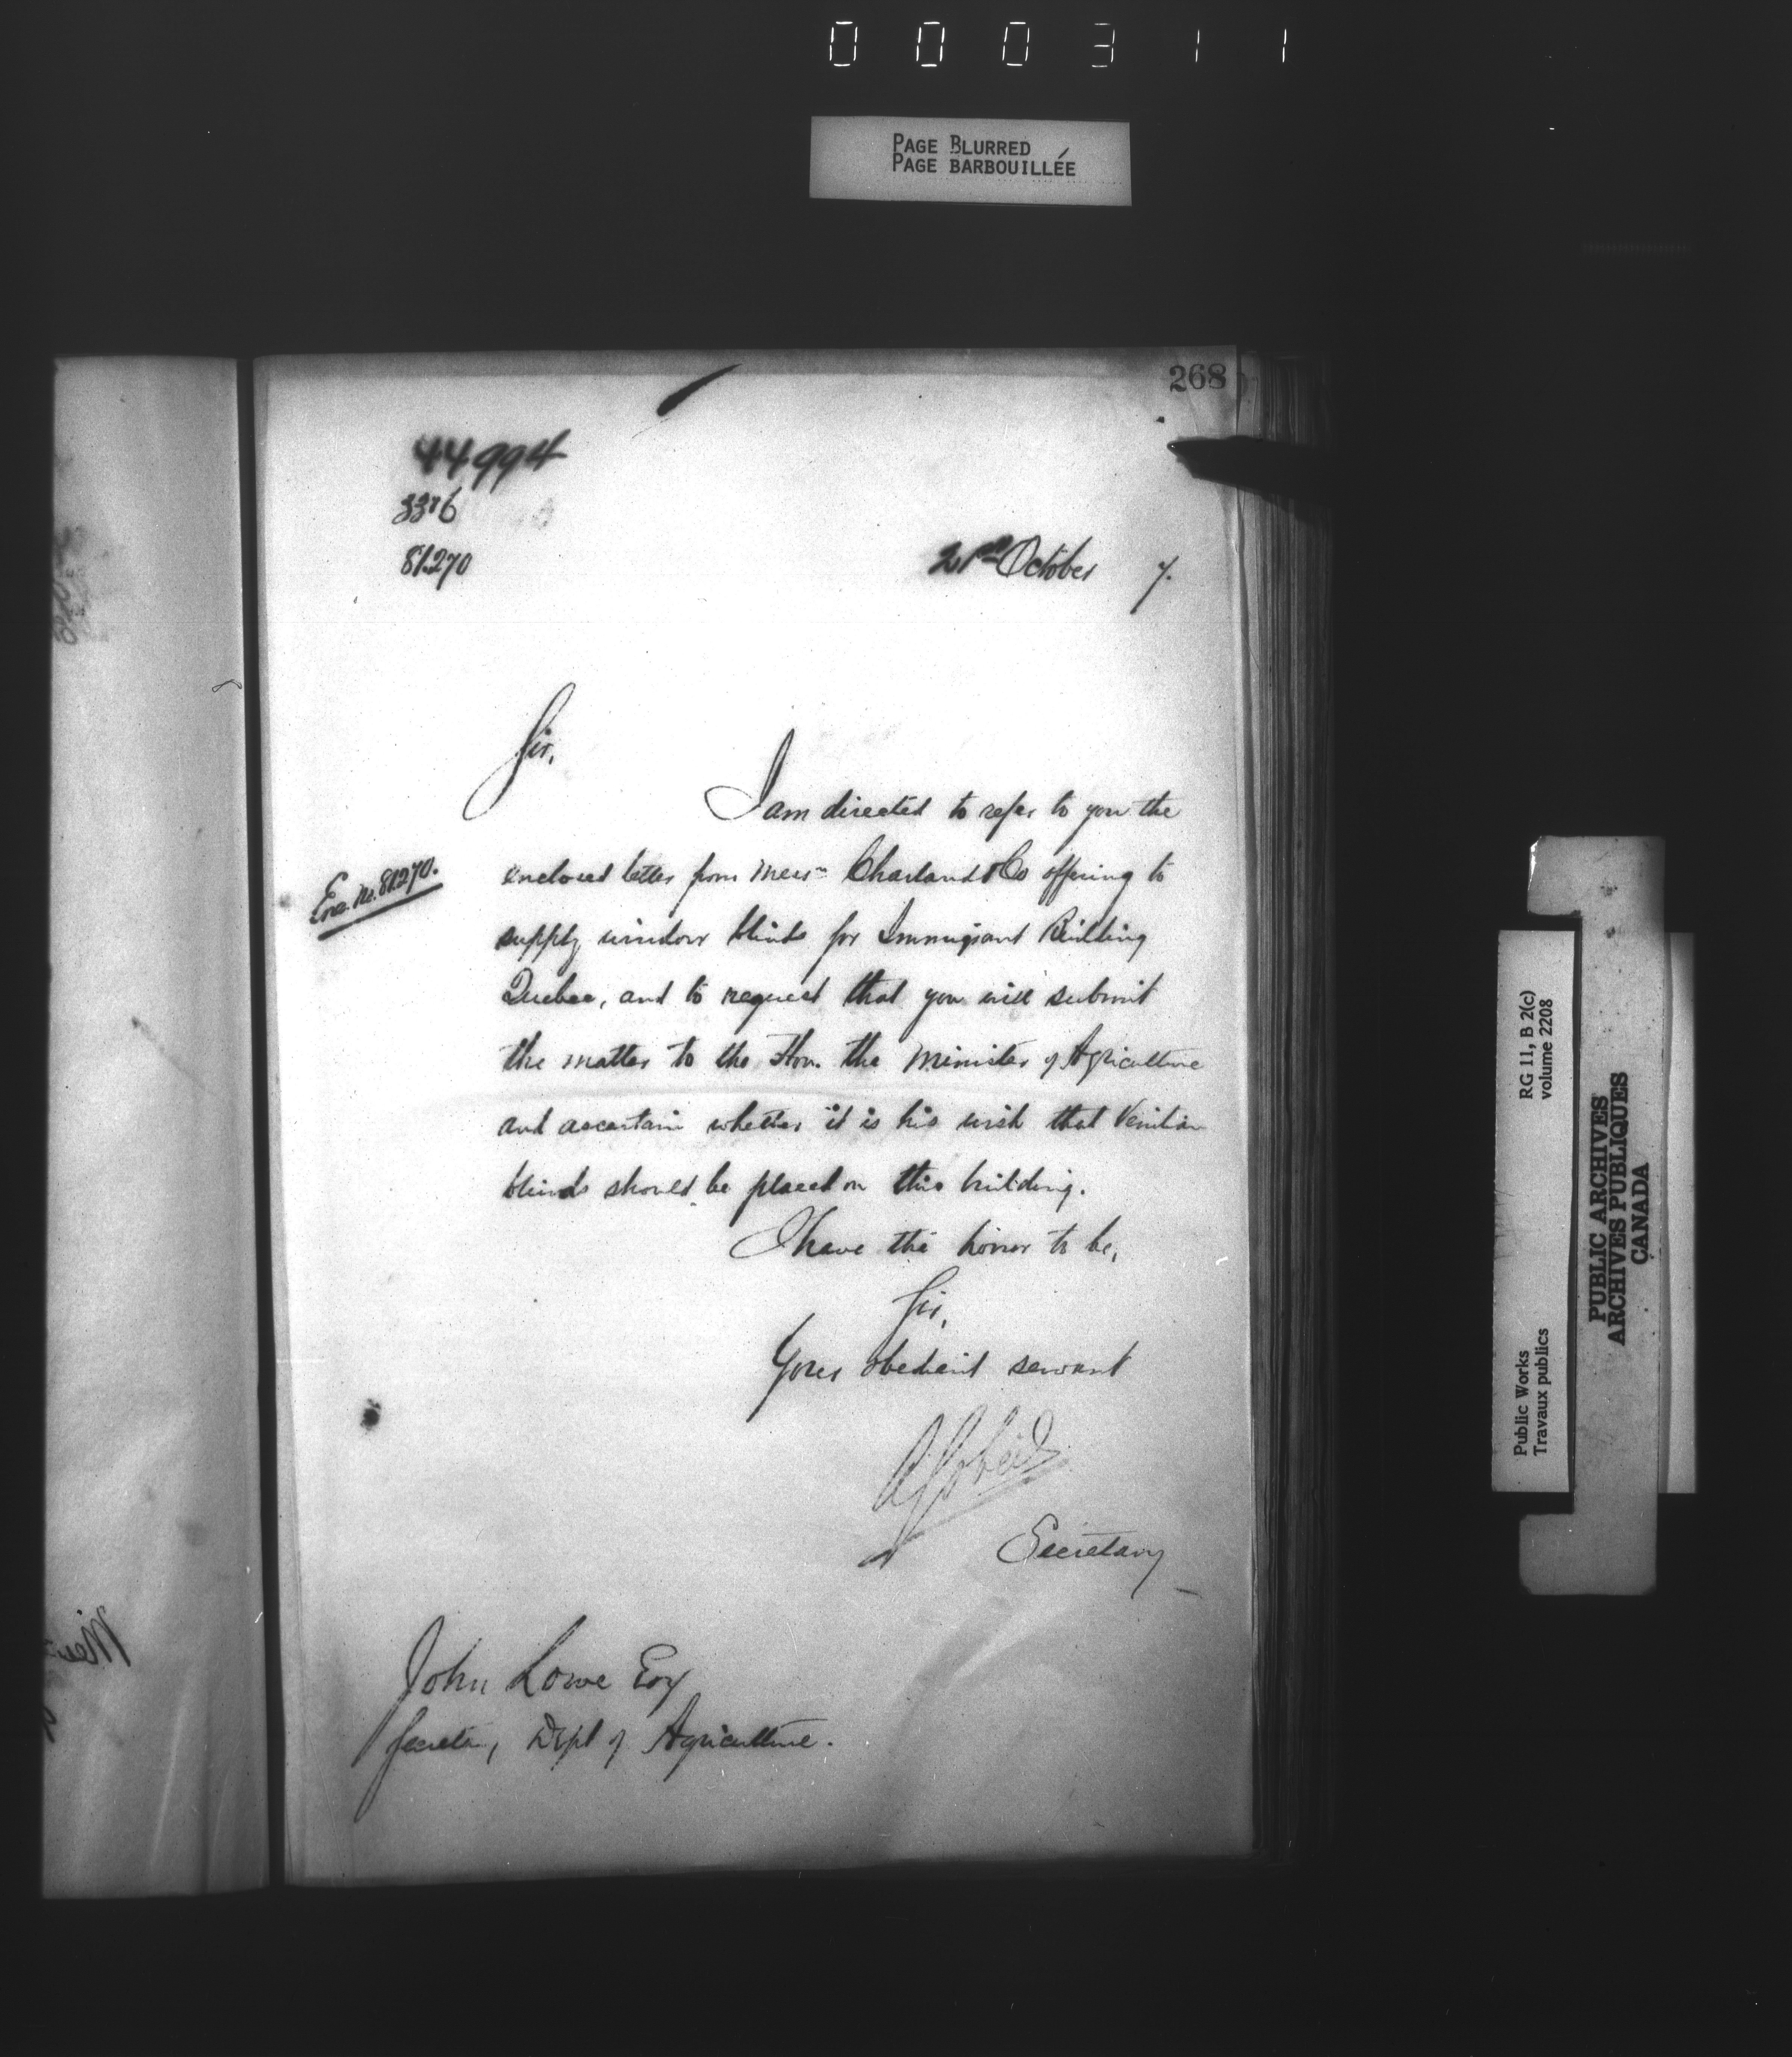 000311
PAGE BLURRED
PAGE BARBOUILLÉE
268
44994
81270
21st October 7.
Sir,
I am directed to refer to you the
enclosed letter from Messrs Charland & Co offering to
supply window blinds for Immigrant Building
Quebec, and to request that you will submit
the matter to the Hon. the Minister of Agriculture
and ascertain whether it is his wish that Venitian
blinds should be placed on this building.
Enc. No. 81270.
I have the honor to be,
Sir,
Your obedient servant
Secretary
John Lowe Esq
Secretary, Dept of Agriculture.
RG 11, B 2(c)
volume 2208
Public Works
Travaux publics
PUBLIC ARCHIVES
ARCHIVES PUBLIQUES
CANADA